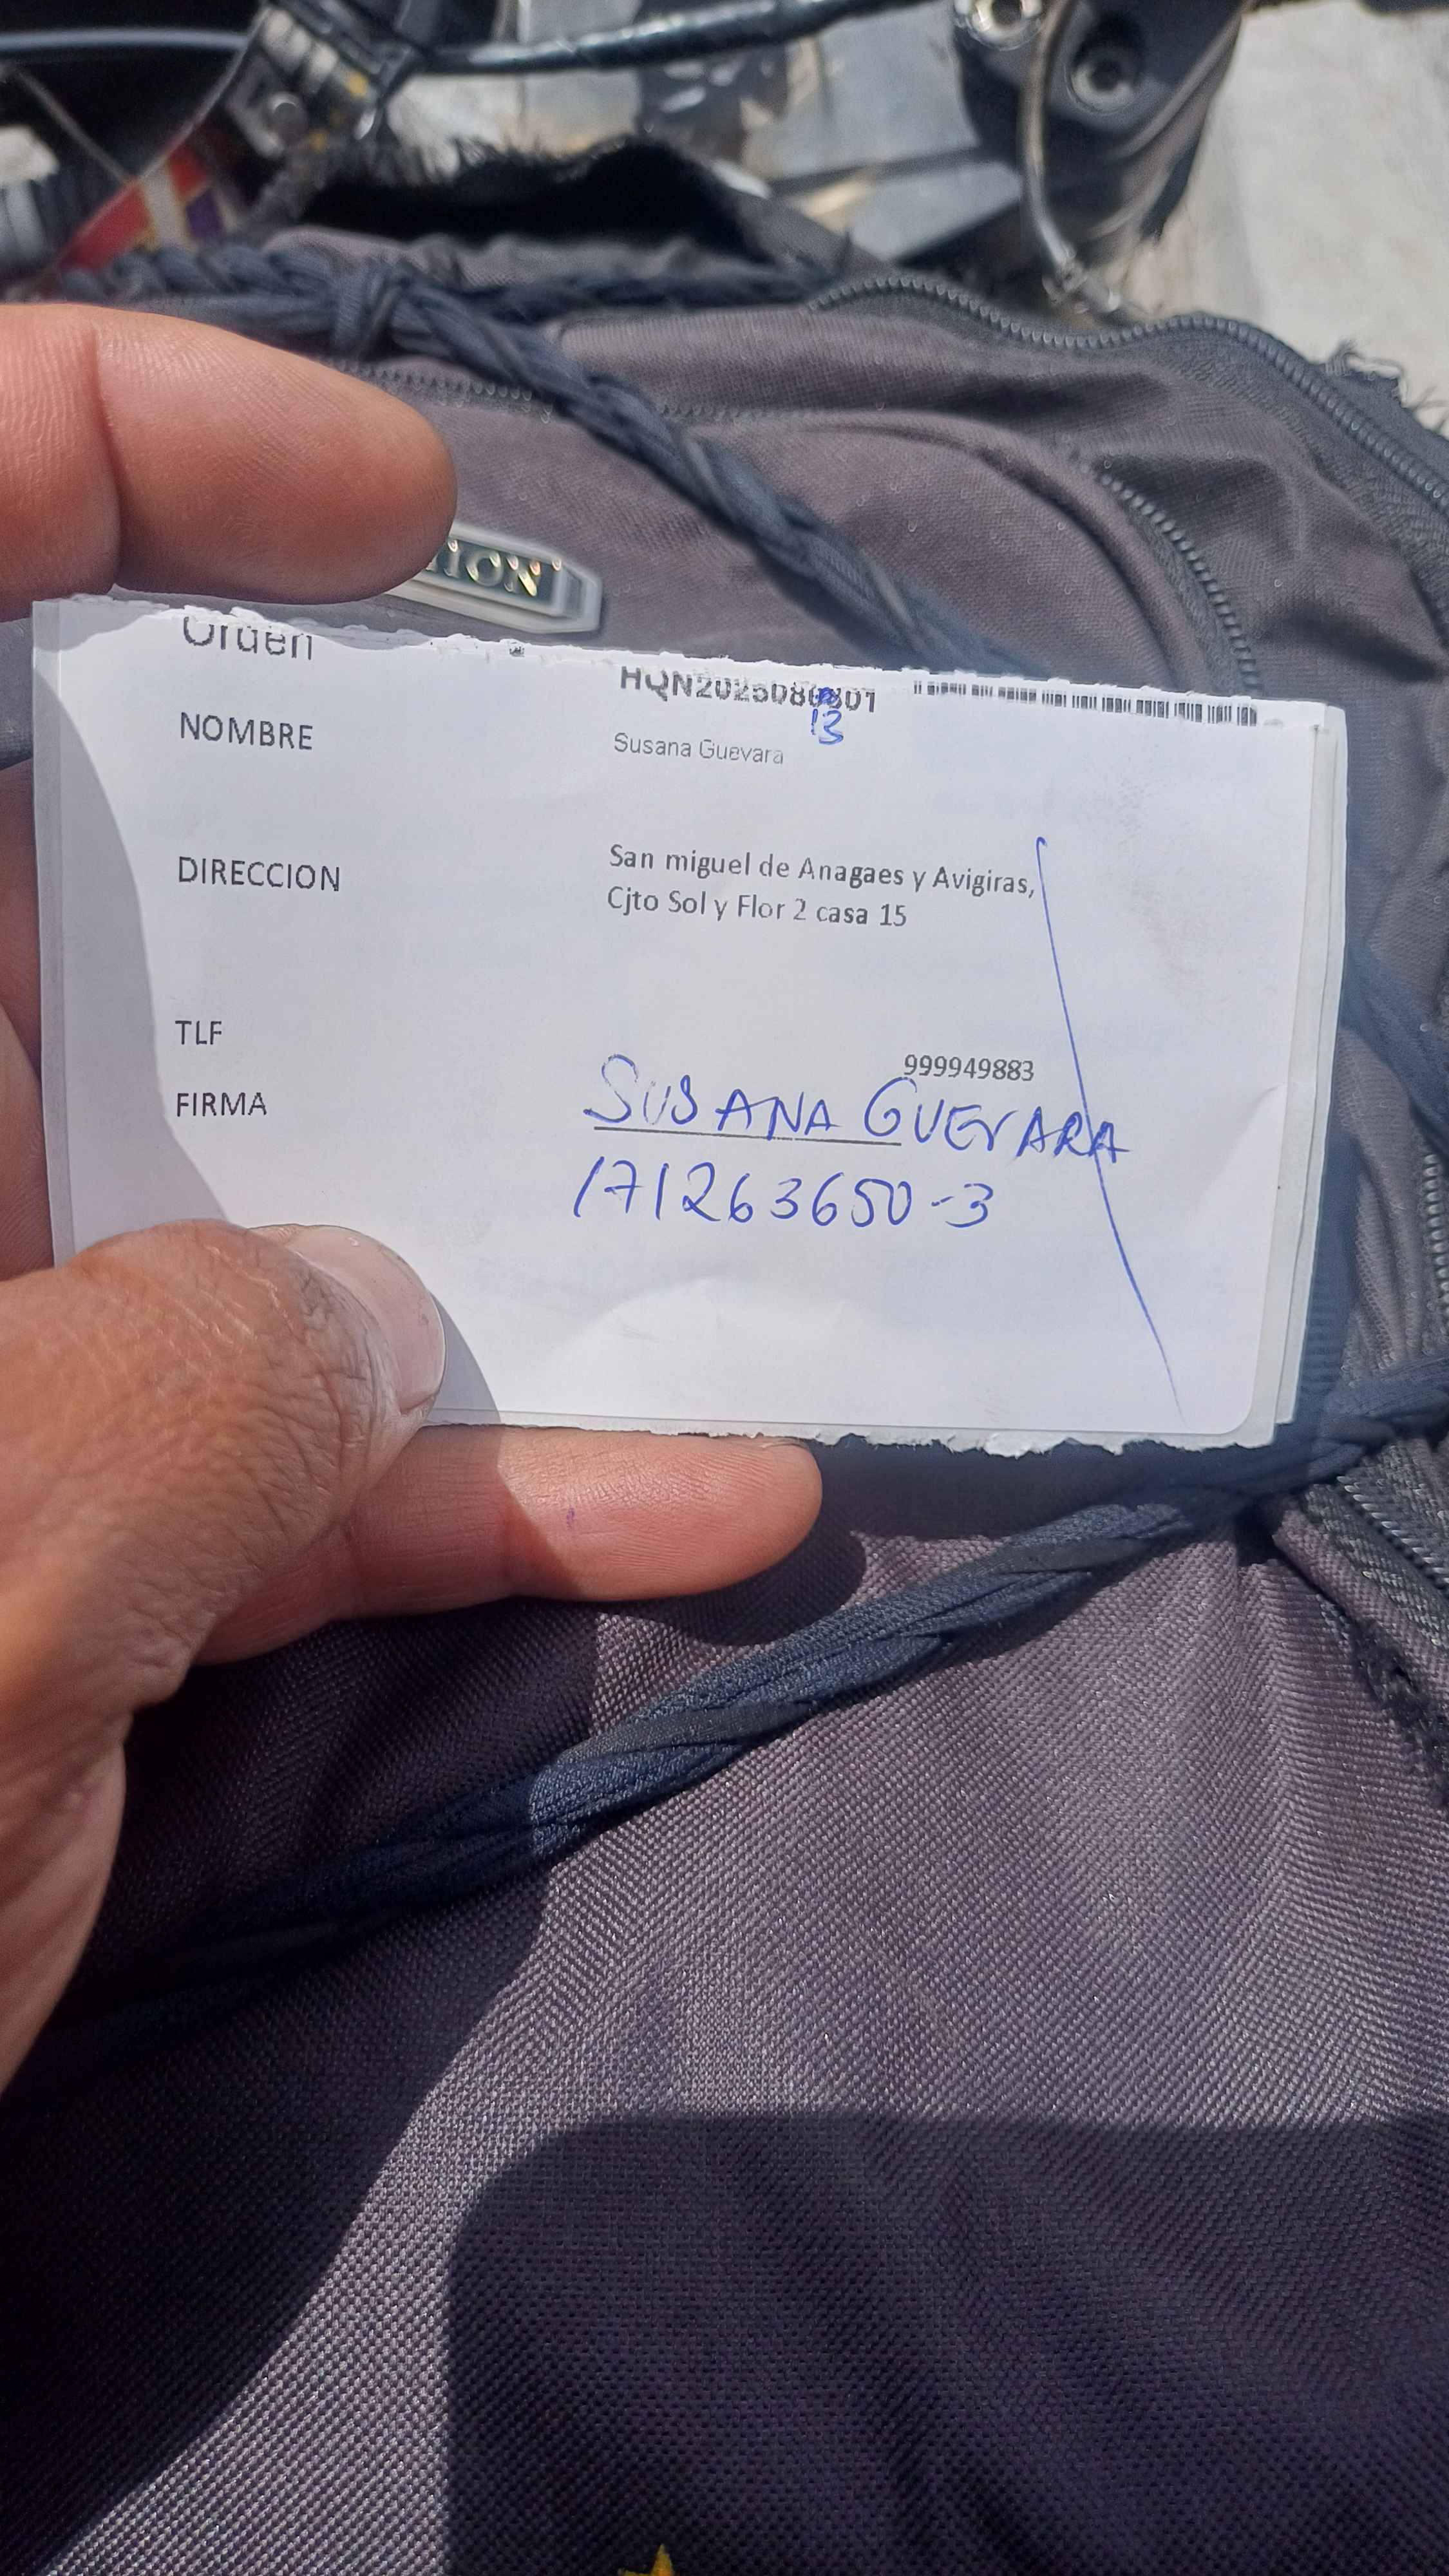 ION
Orden
NOMBRE
Susana Guevara
DIRECCION
San miguel de Anagaes y Avigiras,
Cjto Sol y Flor 2 casa 15
TLF
999949883
FIRMA
SUSANA GUEVARA
171263650-3
13